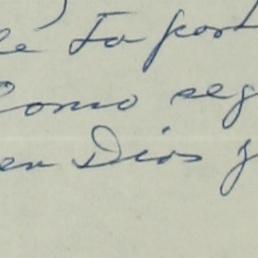 de Fa post
Como seg
en Dios y